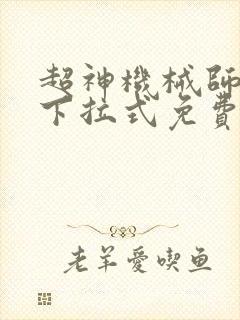 超神機械師
下拉式免費
老羊愛喫鱼